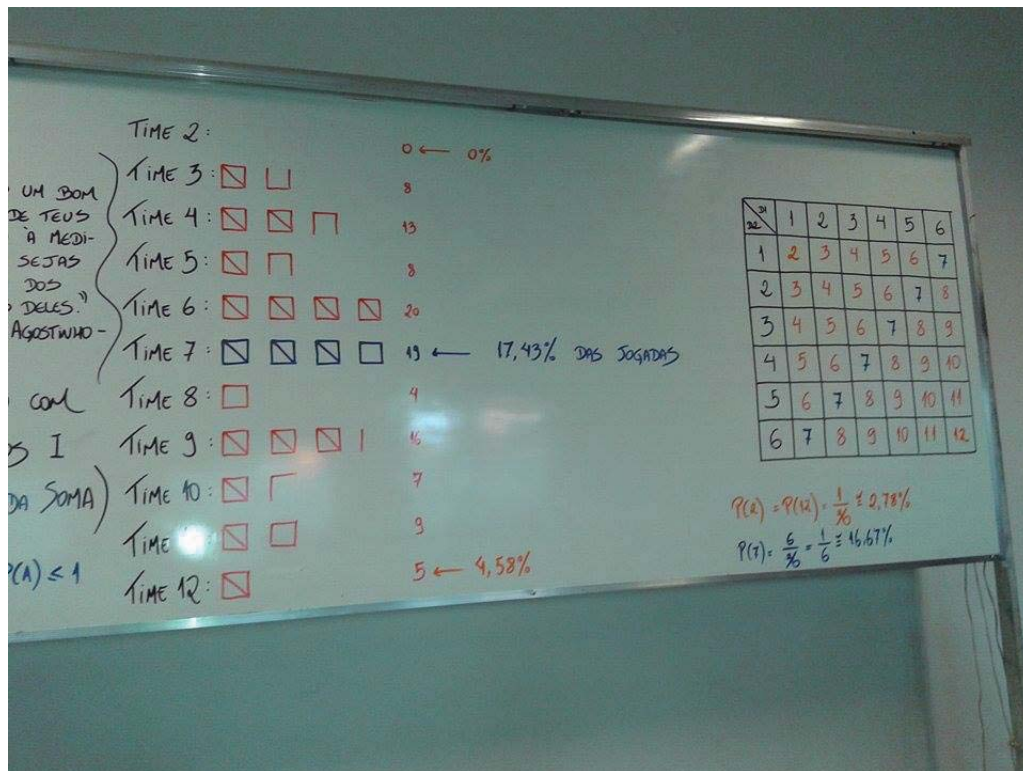 UM BOM
DE TEUS
À MEDI-
SEJAS
DOS
DELES."
AGOSTINHO-
COM
I
DA SOMA)
P(A) ≤ 1
TIME 2:
0 ← 0%
TIME 3:
8
TIME 4:
13
TIME 5:
8
TIME 6:
20
TIME 7:
19 ← 17,43% DAS JOGADAS
TIME 8:
4
TIME 9:
16
TIME 10:
7
TIME
9
TIME 12:
5 ← 4,58%
D1
D2 1 2 3 4 5 6
1 2 3 4 5 6 7
2 3 4 5 6 7 8
3 4 5 6 7 8 9
4 5 6 7 8 9 10
5 6 7 8 9 10 11
6 7 8 9 10 11 12
P(2) = P(12) = 1/36 ≅ 2,78%
P(7) = 6/36 = 1/6 ≅ 16,67%